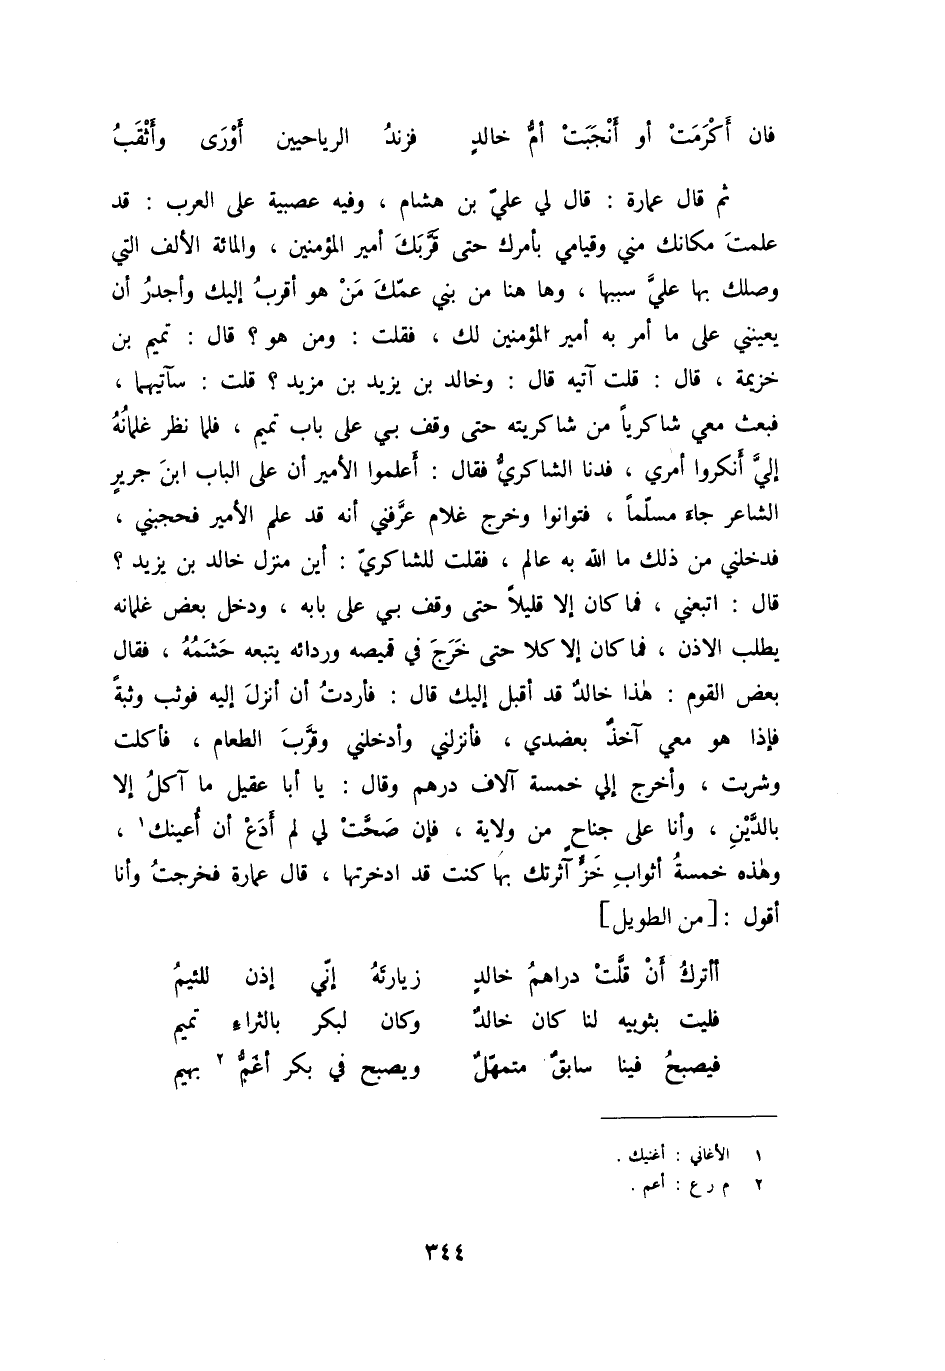 فان أَكْرَمَتْ أو أَنْجَبَتْ أمُّ خالدٍ فزندُ الرياحيين أَوْرَى وأَثْقَبُ
ثم قال عمارة : قال لي عليّ بن هشام ، وفيه عصبية على العرب : قد
علمتَ مكانك مني وقيامي بأمرك حتى قَرَّبَكَ أمير المؤمنين ، والمائة الألف التي
وصلك بها عليَّ سببها ، وها هنا من بني عمّكَ مَنْ هو أقربُ إليك وأجدرُ أن
يعينني على ما أمر به أمير المؤمنين لك ، فقلت : ومن هو ؟ قال : تميم بن
خزيمة ، قال : قلت آتيه قال : وخالد بن يزيد بن مزيد ؟ قلت : سآتيهما ،
فبعث معي شاكرياً من شاكريته حتى وقف بي على باب تميم ، فلما نظر غلمانُهُ
إليَّ أَنكروا أمري ، فدنا الشاكريُّ فقال : أَعلموا الأمير أن على الباب ابنَ جريرٍ
الشاعر جاء مسلّماً ، فتوانوا وخرج غلام عرَّفني أنه قد علم الأمير فحجبني ،
فدخلني من ذلك ما الله به عالم ، فقلت للشاكريّ : أين منزل خالد بن يزيد ؟
قال : اتبعني ، فما كان إلا قليلاً حتى وقف بي على بابه ، ودخل بعض غلمانه
يطلب الاذن ، فما كان إلا كلا حتى خَرَجَ في قميصه وردائه يتبعه حَشَمُهُ ، فقال
بعض القوم : هٰذا خالدٌ قد أقبل إليك قال : فأردتُ أن أنزلَ إليه فوثب وثبةً
فإذا هو معي آخذٌ بعضدي ، فأنزلني وأدخلني وقرَّبَ الطعام ، فأكلت
وشربت ، وأخرج إلي خمسة آلاف درهم وقال : يا أبا عقيل ما آكلُ إلا
بالدَّيْنِ ، وأنا على جناحٍ من ولاية ، فإن صَحَّتْ لي لم أَدَعْ أن أُعينك١ ،
وهٰذه خمسةُ أثوابِ خَزٍّ آثرتك بها كنت قد ادخرتها ، قال عمارة فخرجتُ وأنا
أقول : [من الطويل]
أأتركُ أَنْ قلَّتْ دراهمُ خالدٍ زيارتَهُ إنّي إذن للئيمُ
فليت بثوبيه لنا كان خالدٌ وكان لبكر بالثراءِ تميم
فيصبحُ فينا سابقٌ متمهّلٌ ويصبح في بكر أغَمُّ ٢ بهيم
١ الأغاني : أغنيك .
٢ م ر ع : أعم .
٣٤٤